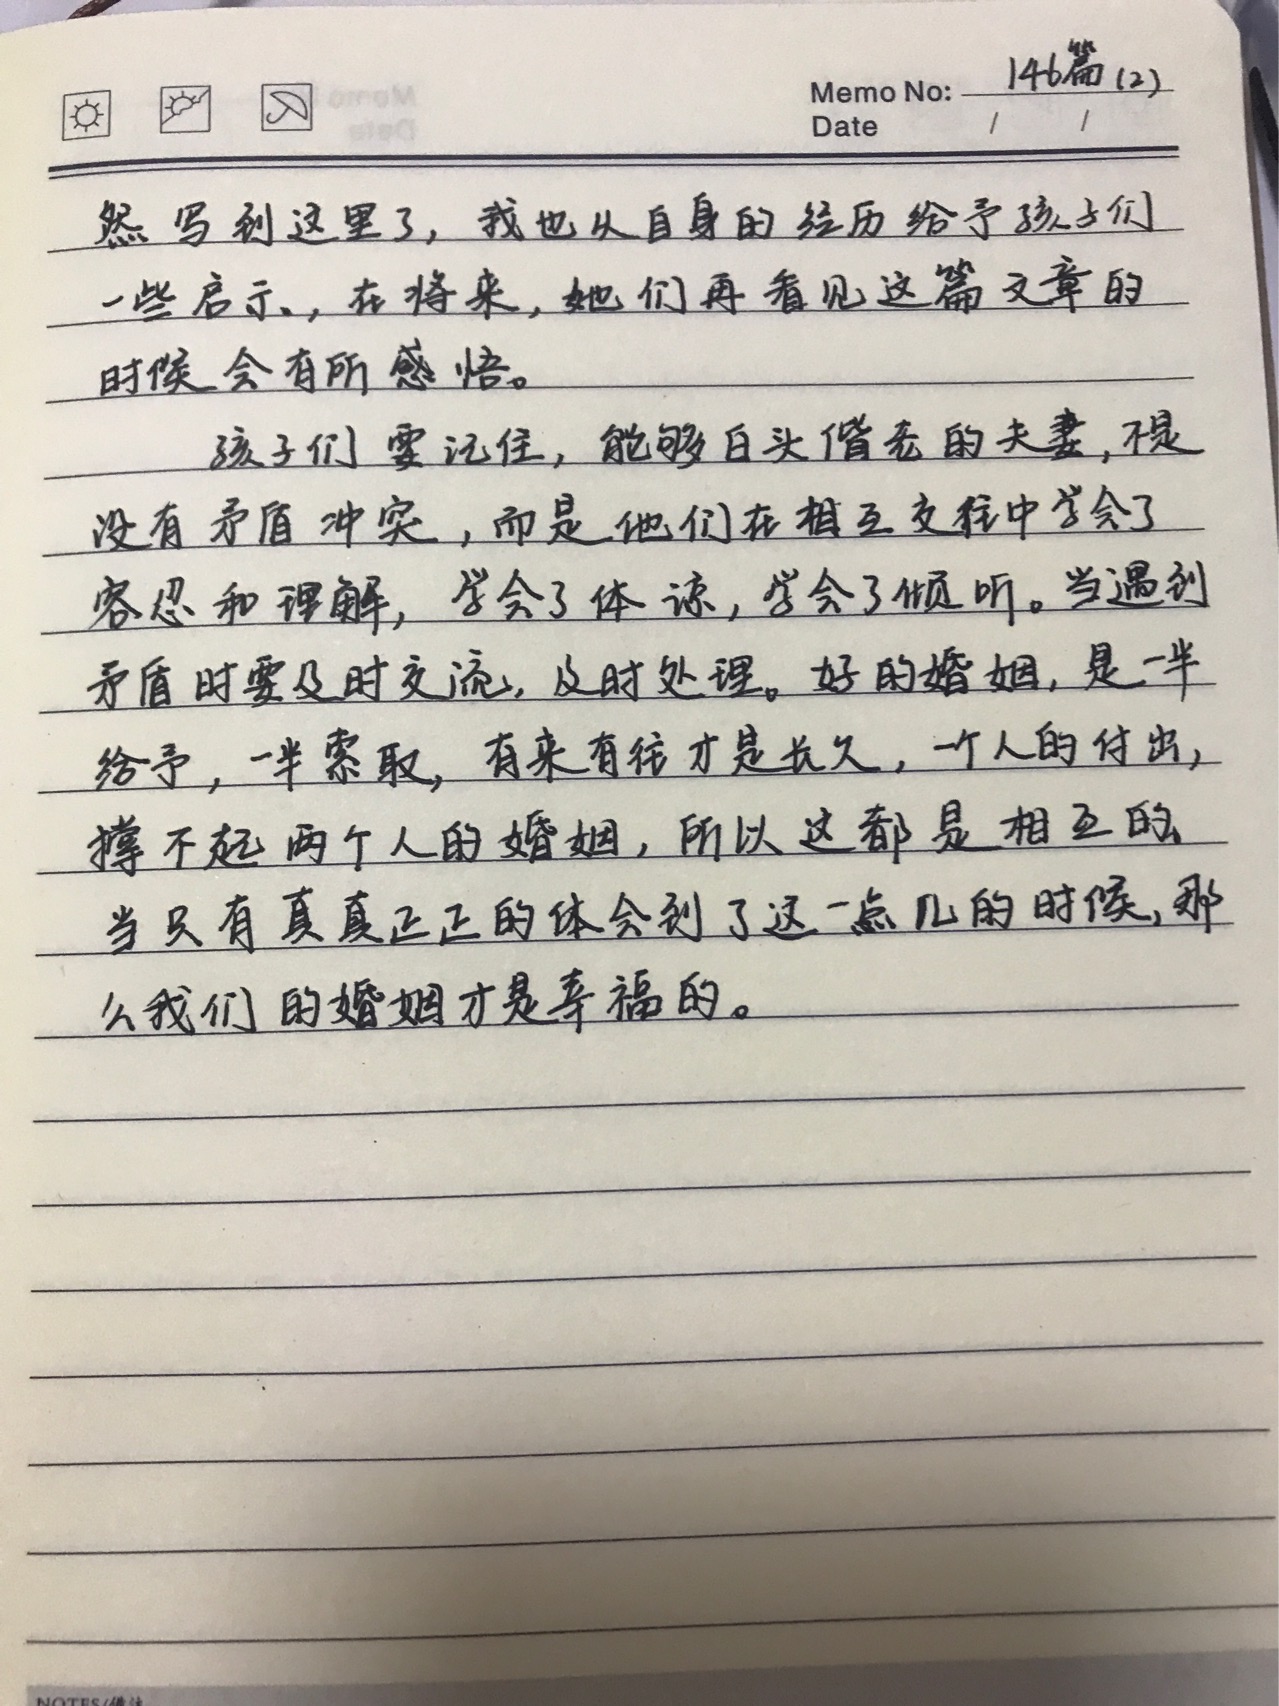 Memo No: 146篇(2)
Date / /
然写到这里了，我也从自身的经历给予孩子们
一些启示，在将来，她们再看见这篇文章的
时候会有所感悟。
孩子们要记住，能够白头偕老的夫妻，不是
没有矛盾冲突，而是他们在相互交往中学会了
容忍和理解，学会了体谅，学会了倾听。当遇到
矛盾时要及时交流，及时处理。好的婚姻，是一半
给予，一半索取，有来有往才是长久，一个人的付出，
撑不起两个人的婚姻，所以这都是相互的，
当只有真真正正的体会到了这一点儿的时候，那
么我们的婚姻才是幸福的。
NOTES/备注